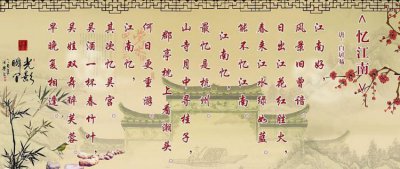 ^忆江南
唐：白居易
江南好，
风景旧曾谙
日出江花红胜火，
春来江水绿如蓝。
能不忆江南
江南忆，
最忆是杭州。
山寺月中寻桂子，
郡亭枕上看潮头。
何日更重游
江南忆，
其次忆吴宫。
吴酒一杯春竹叶，
吴娃双舞醉芙蓉。
早晚复相逢。